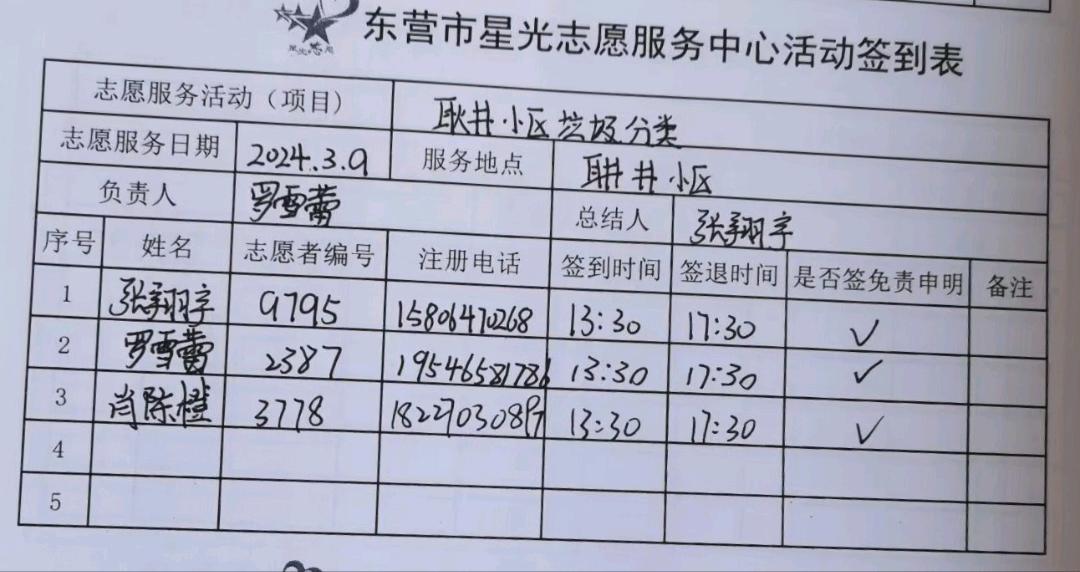 星光志愿
东营市星光志愿服务中心活动签到表
志愿服务活动（项目） 耿井小区垃圾分类
志愿服务日期 2024.3.9 服务地点 耿井小区
负责人 罗雪蕾 总结人 张翔宇
序号 姓名 志愿者编号 注册电话 签到时间 签退时间 是否签免责申明 备注
1 张翔宇 9795 15806470268 13:30 17:30 ✓
2 罗雪蕾 2387 19546581786 13:30 17:30 ✓
3 肖陈橙 3778 18227030897 13:30 17:30 ✓
4
5